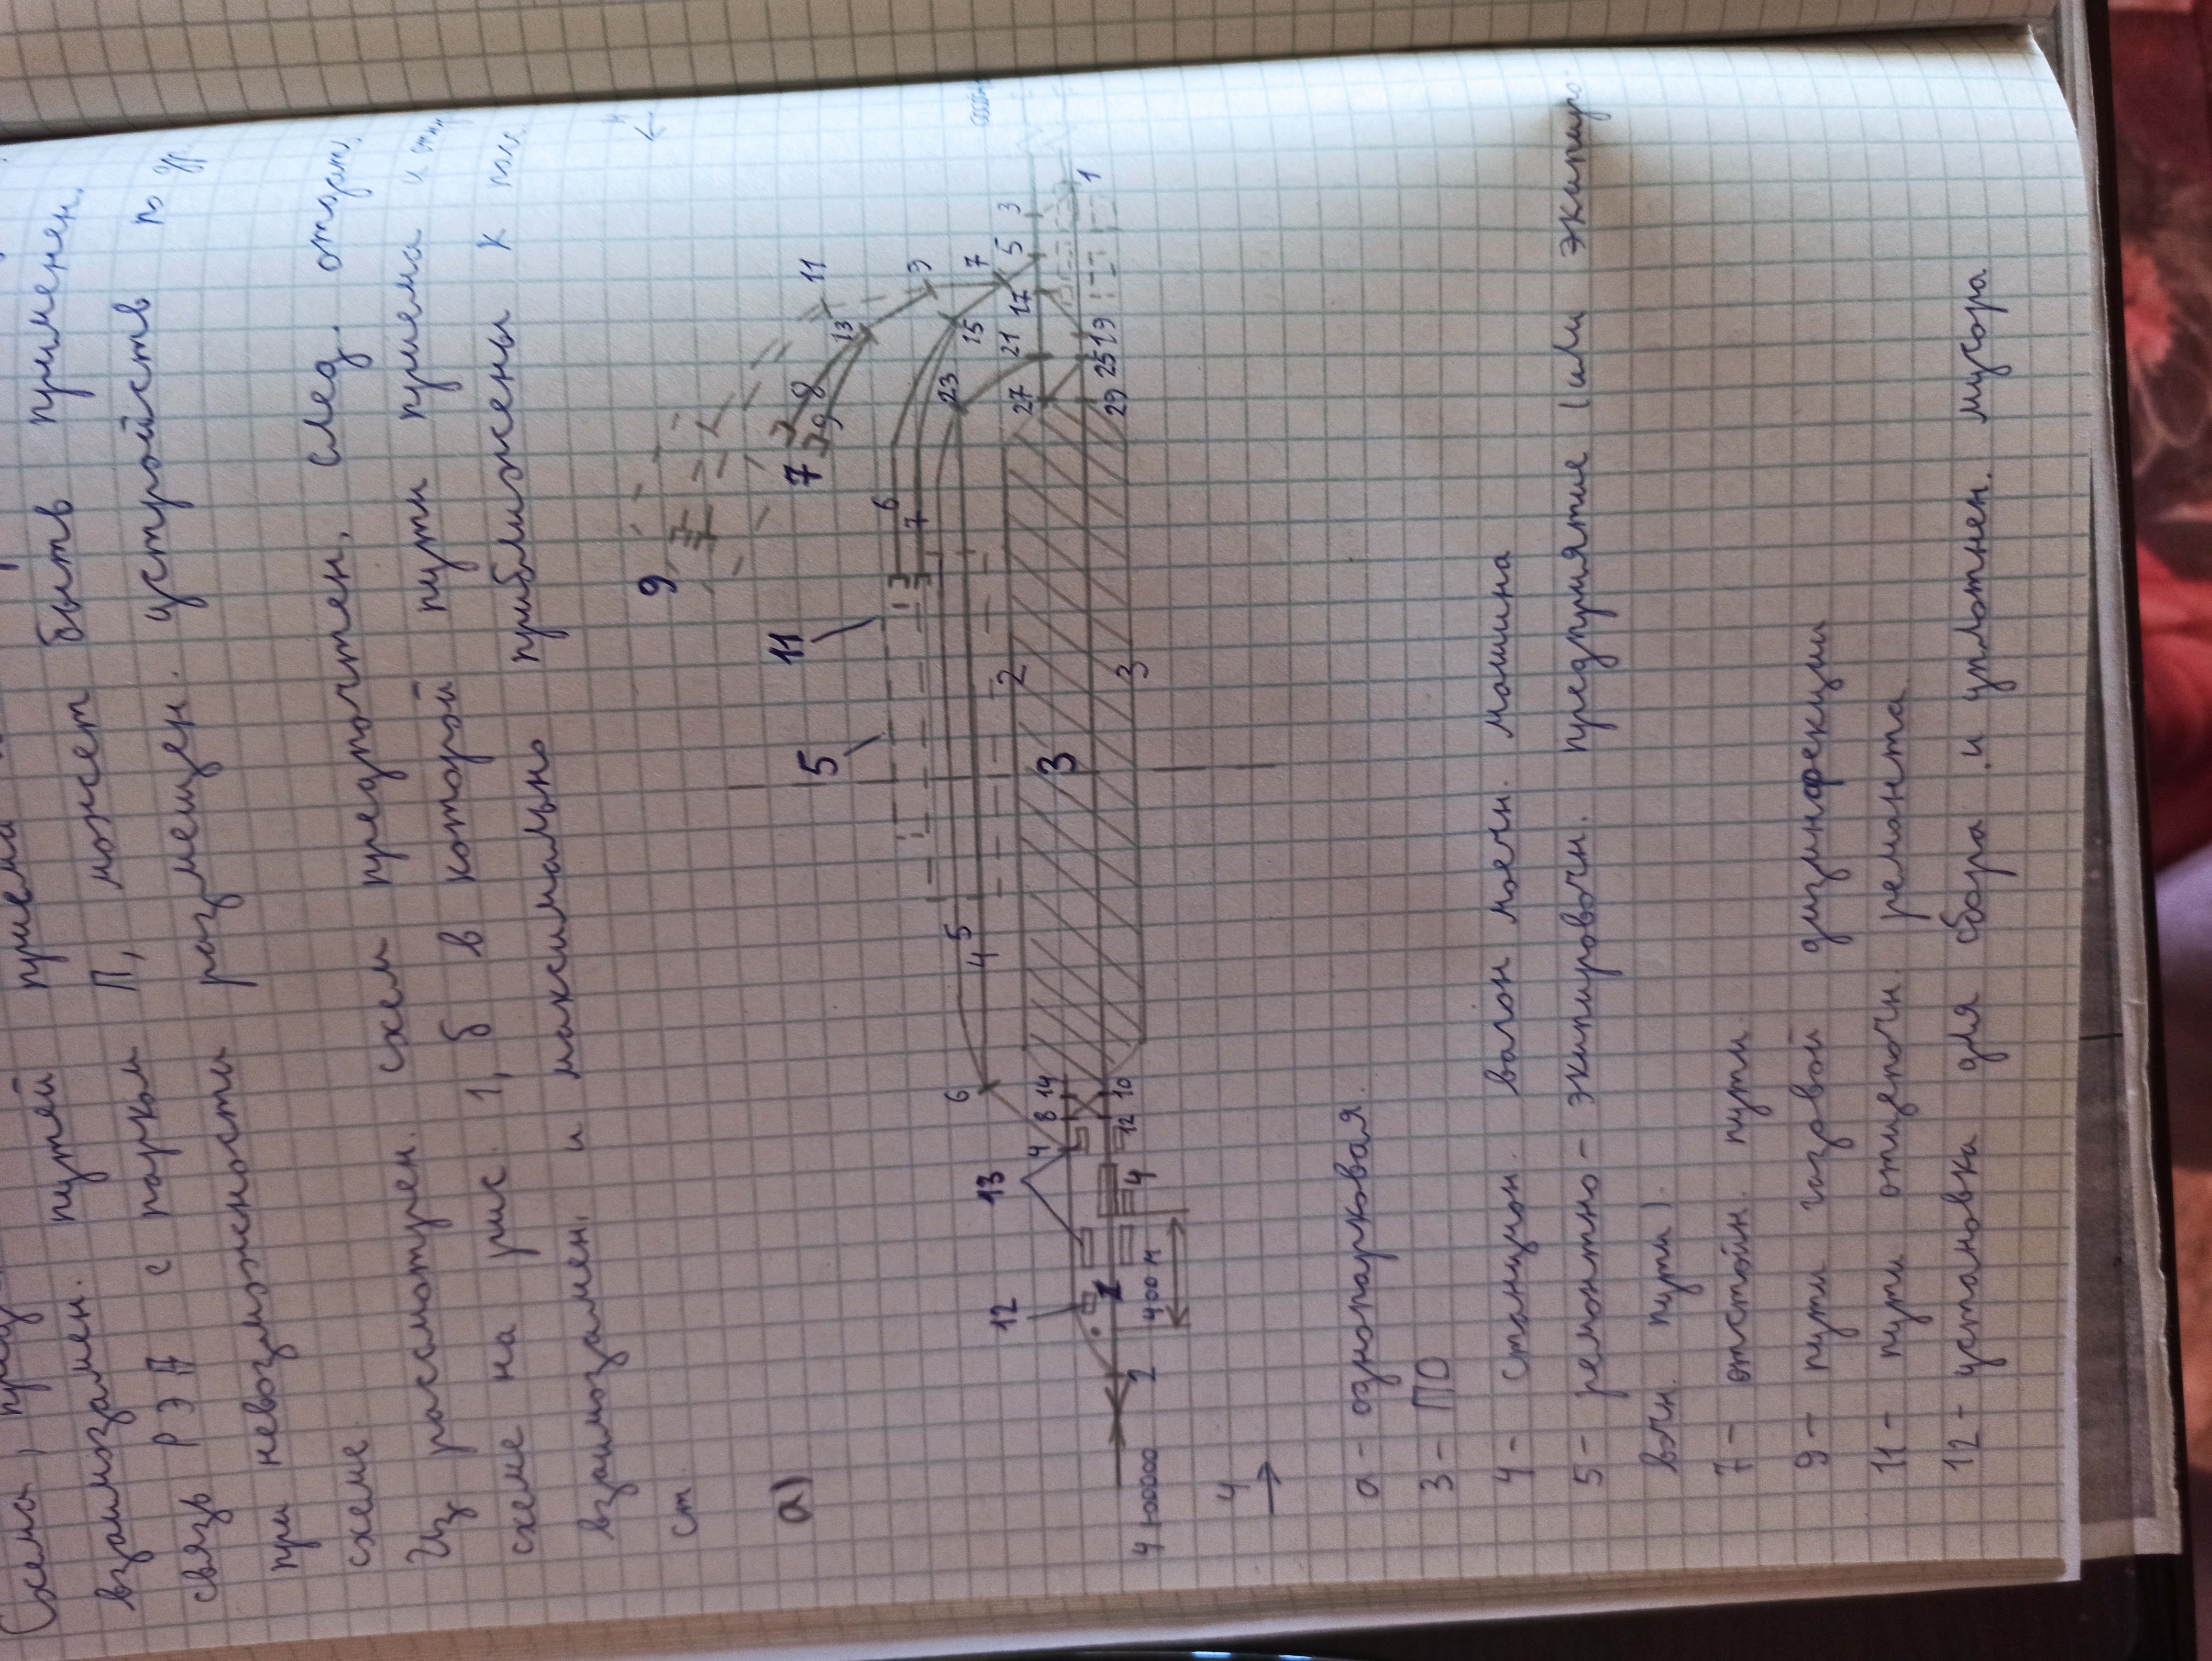 Схемы,
взаимозамен. путей приема
связь РЭД с парком П, может быть применен.
при невозможности размещен. устройств по др.
схеме.
Из рассмотрен. схем предпочтен. след. отдат.
схеме на рис. 1, б в которой пути приема и
взаимозамен. и максимально приближены к
ст.
а)
9
11
5
7
12
13
3
11
13
9
7
5
3
1
8
9
6
7
15
17
19
21
23
25
27
29
6
4
5
2
3
4
8
14
10
12
4
1
2
400 м
4
а - однопарковая.
3 - ПО
4 - станцион. вагон моечн. машина
5 - ремонтно - экипировочн. предприятие (или экипиро
вочн. пути).
7 - отстойн. пути.
9 - пути газовой дизинфекции
11 - пути отцепочн. ремонта.
12 - установка для сбора и уплотнен. мусора